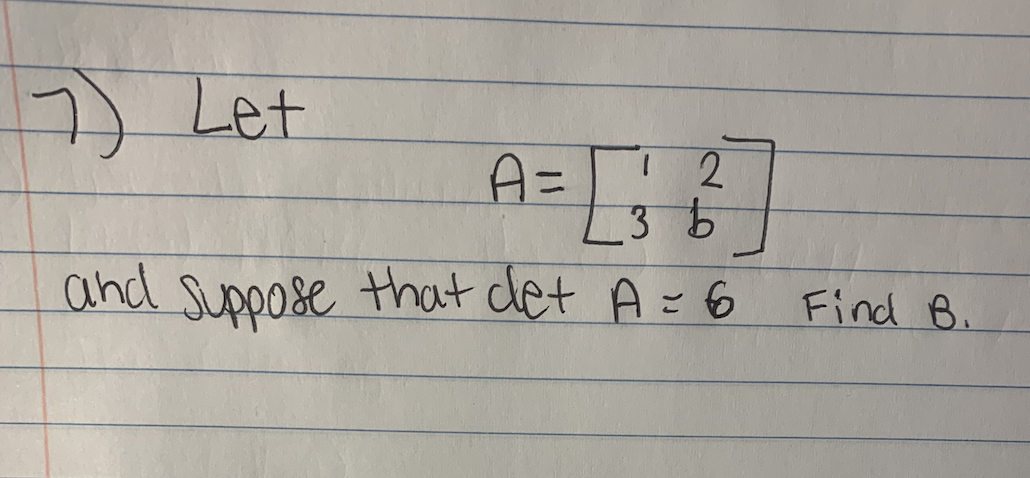 7) Let
A = [ 1 2
3 b ]
and suppose that det A = 6 Find B.